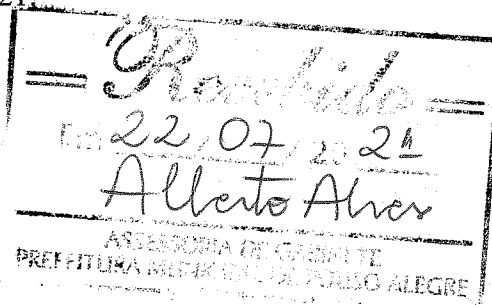 Recebido
Em 22, 07 / 20 21
Alberto Alves
ASSESSORIA DE GABINETE
PREFEITURA MUNICIPAL DE POUSO ALEGRE